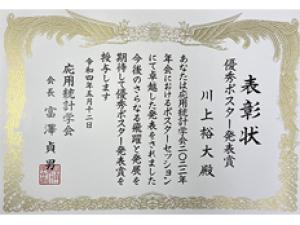 表彰状
優秀ポスター発表賞
川上裕大殿
あなたは応用統計学会二〇二二年
年会におけるポスターセッション
にて卓越した発表をされました
今後のさらなる飛躍と発展を
期待して優秀ポスター発表賞を
授与します
令和四年五月十二日
応用統計学会
会長 富澤貞男